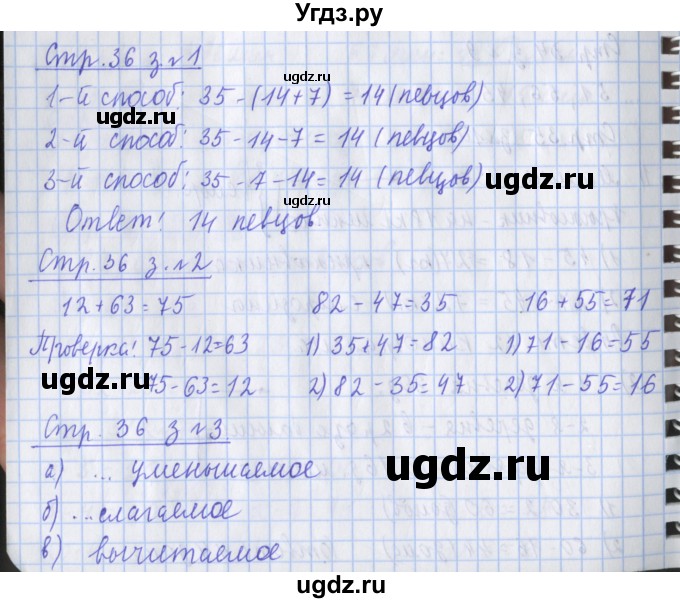 Угдз.ру
Стр. 36 з. №1
ugdz.ru
1-й способ: 35 - (14+7) = 14 (певцов)
2-й способ: 35 - 14 - 7 = 14 (певцов)
ugdz.ru
3-й способ: 35 - 7 - 14 = 14 (певцов)
ugdz.ru
ugdz.ru
Ответ: 14 певцов.
Стр. 36 з. №2
12 + 63 = 75 82 - 47 = 35 16 + 55 = 71
ugdz.ru
Проверка: 75 - 12 = 63 1) 35 + 47 = 82 1) 71 - 16 = 55
ugdz.ru
75 - 63 = 12 2) 82 - 35 = 47 2) 71 - 55 = 16
Стр. 36 з №3
ugdz.ru
ugdz.ru
а) ... уменьшаемое
б) ... слагаемое
в) вычитаемое
ugdz.ru
ugdz.ru